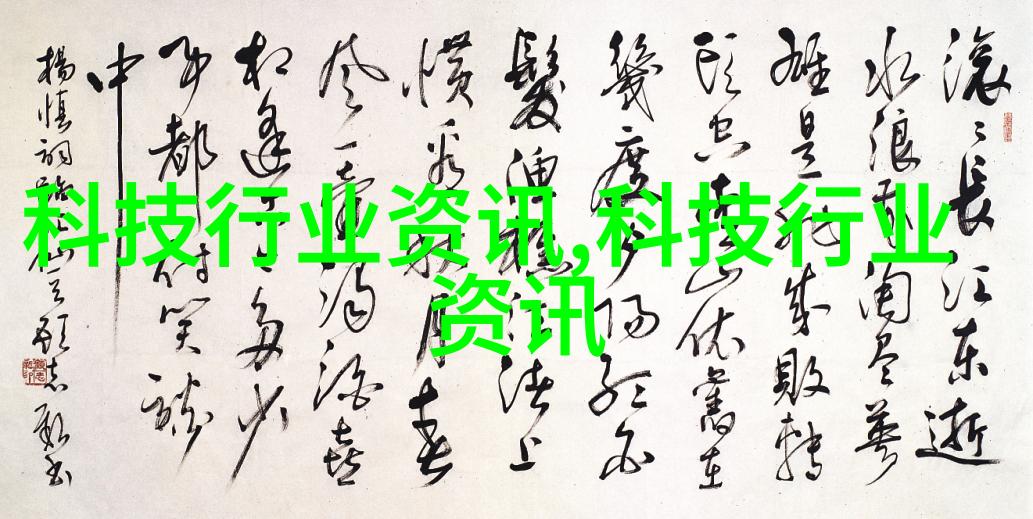 滚〻長江东逝
水浪花淘尽英
雄是非成败转
头空青山依舊在
幾度夕阳红白
髮渔樵江渚上
惯看秋月春
风一壶浊酒喜
相逢古今多少
事都付笑谈
中
楊慎词临江仙
科技行业资讯,科技行业
资讯